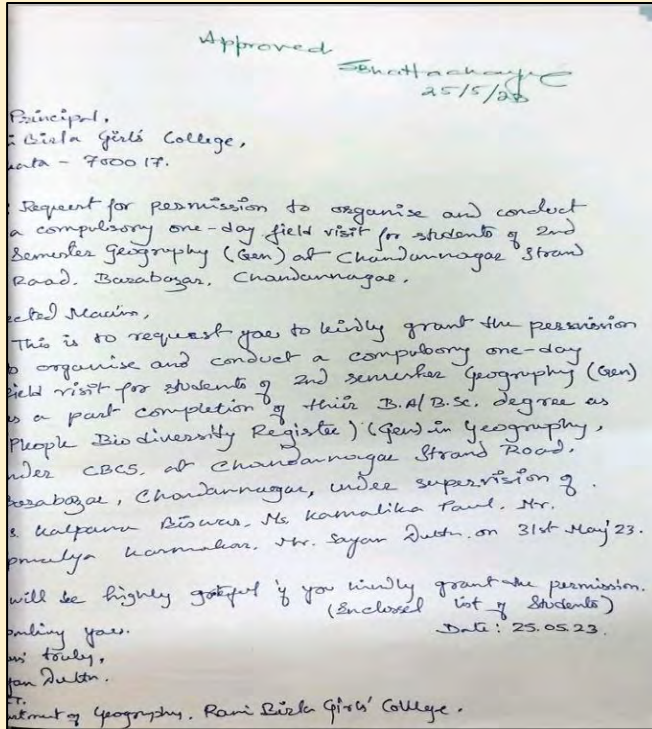 Approved
SBhattacharjee
25/5/23
Principal,
i Birla Girls' College,
kata - 700017.
: Request for permission to organise and conduct
a compulsory one-day field visit for students of 2nd
Semester Geography (Gen) at Chandannagar Strand
Road, Barabazar, Chandannagar.
ected Madam,
This is to request you to kindly grant the permission
o organise and conduct a compulsory one-day
field visit for students of 2nd semester Geography (Gen)
as a part completion of their B.A/B.Sc. degree as
People Biodiversity Register) (Gen) in Geography,
nder CBCS, at Chandannagar Strand Road,
Barabazar, Chandannagar, under supervision of
s Kalpana Biswas, Ms. Kamalika Paul, Mr.
Karmakar, Mr. Sayan Dutta, on 31st May'23.
will be highly grateful if you kindly grant the permission.
(Enclosed list of Students)
you.
Date: 25.05.23.
truly,
yan Dutta.
rtment of Geography. Rani Birla Girls' College.